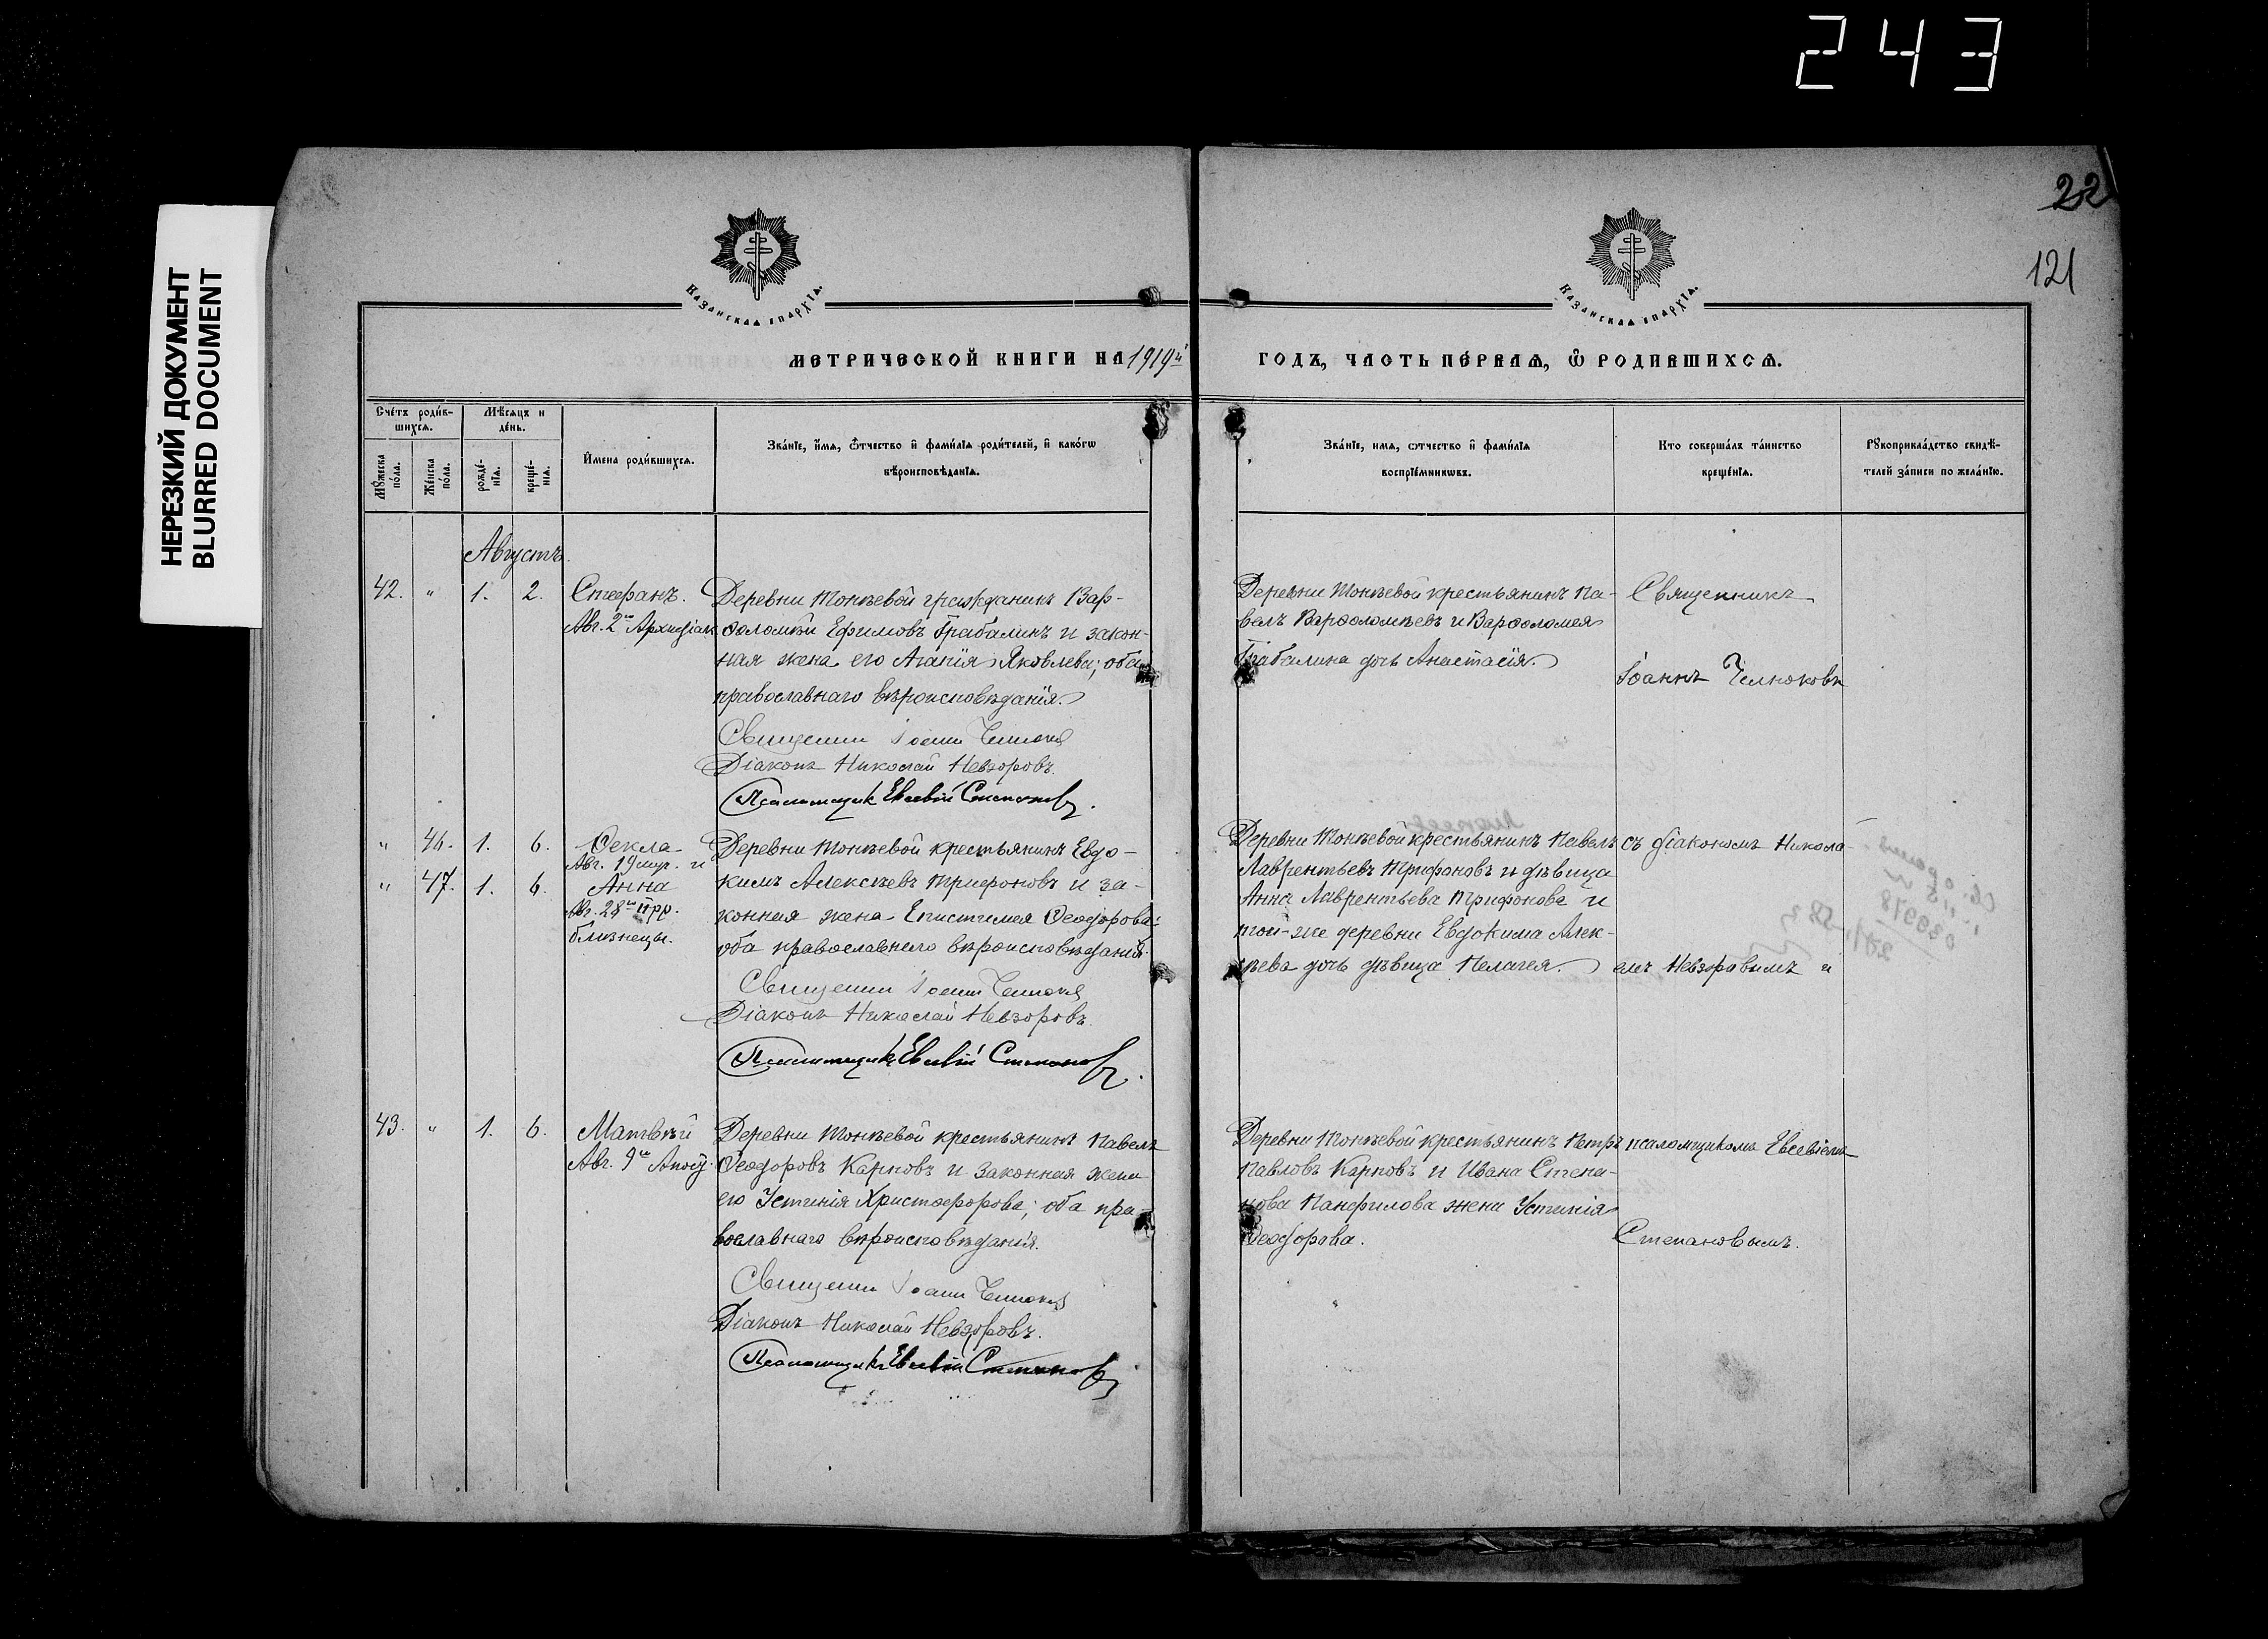 243
НЕРЕЗКИЙ ДОКУМЕНТ
BLURRED DOCUMENT
22
121
Казанская епархїѧ.
Казанская епархїѧ.
МЕТРИЧЕСКОЙ КНИГИ НА 1919й
ГОДЪ, ЧАСТЬ ПЕ́РВАѦ, Ѿ РОДИВШИХСѦ.
Сче́тъ роди́в-
шихсѧ.
Мѣ́сѧцъ и
де́нь.
Мꙋ́жеска
по́ла.
Же́нска
по́ла.
рожде́-
нїѧ.
креще́-
нїѧ.
И҆мена роди́вшихсѧ.
Зва́нїе, и҆́мѧ, ѻ҆́тчество и҆ фами́лїѧ роди́телей, и҆ како́гѡ
вѣроисповѣ́данїѧ.
Зва́нїе, имѧ, ѻтчество и҆ фами́лїѧ
воспрїе́мникѡвъ.
Кто соверша́лъ та́инство
креще́нїѧ.
Рꙋкоприкла́дство свидѣ́-
телей за́писи по жела́нїю.
Августъ.
42. " 1. 2. Стефанъ.
Авг. 2го Архидіак.
Деревни Тонѣевой гражданинъ Вар-
ѳоломѣй Ефимовъ Грабалинъ и закон-
ная жена его Агапія Яковлева; оба
православнаго вѣроисповѣданія.
Священникъ Іоаннъ Челноковъ
Діаконъ Николай Невзоровъ.
Псаломщикъ Евсевій Степановъ.
Деревни Тонѣевой крестьянинъ Па-
велъ Варѳоломѣевъ и Варѳоломея
Грабалина дочь Анастасія.
Священникъ
Іоаннъ Челноковъ
" 46. 1. 6. Ѳекла
Авг. 19 мцр. и
" 47. 1. 6. Анна
Авг. 28го прр.
близнецы.
Деревни Тонѣевой крестьянинъ Евдо-
кимъ Алексѣевъ Трифоновъ и за-
конная жена Епистимея Ѳеодорова:
оба православнаго вѣроисповѣданія.
Священникъ Іоаннъ Челноковъ
Діаконъ Николай Невзоровъ.
Псаломщикъ Евсевій Степановъ.
Деревни Тонѣевой крестьянинъ Павелъ
Лаврентьевъ Трифоновъ и дѣвица
Анна Лаврентьева Трифонова и
той-же деревни Евдокима Алек-
сѣева дочь дѣвица Пелагея.
съ діакономъ Никола-
емъ Невзоровымъ и
43. " 1. 6. Матвѣй
Авг. 9го Апост.
Деревни Тонѣевой крестьянинъ Павелъ
Ѳеодоровъ Карповъ и законная жена
его Устинія Христофорова; оба пра-
вославнаго вѣроисповѣданія.
Священникъ Іоаннъ Челноковъ
Діаконъ Николай Невзоровъ.
Псаломщикъ Евсевій Степановъ
Деревни Тонѣевой крестьянинъ Петръ
Павловъ Карповъ и Ивана Степа-
нова Панфилова жена Устинія
Ѳеодорова.
псаломщикомъ Евсевіемъ
Степановымъ.